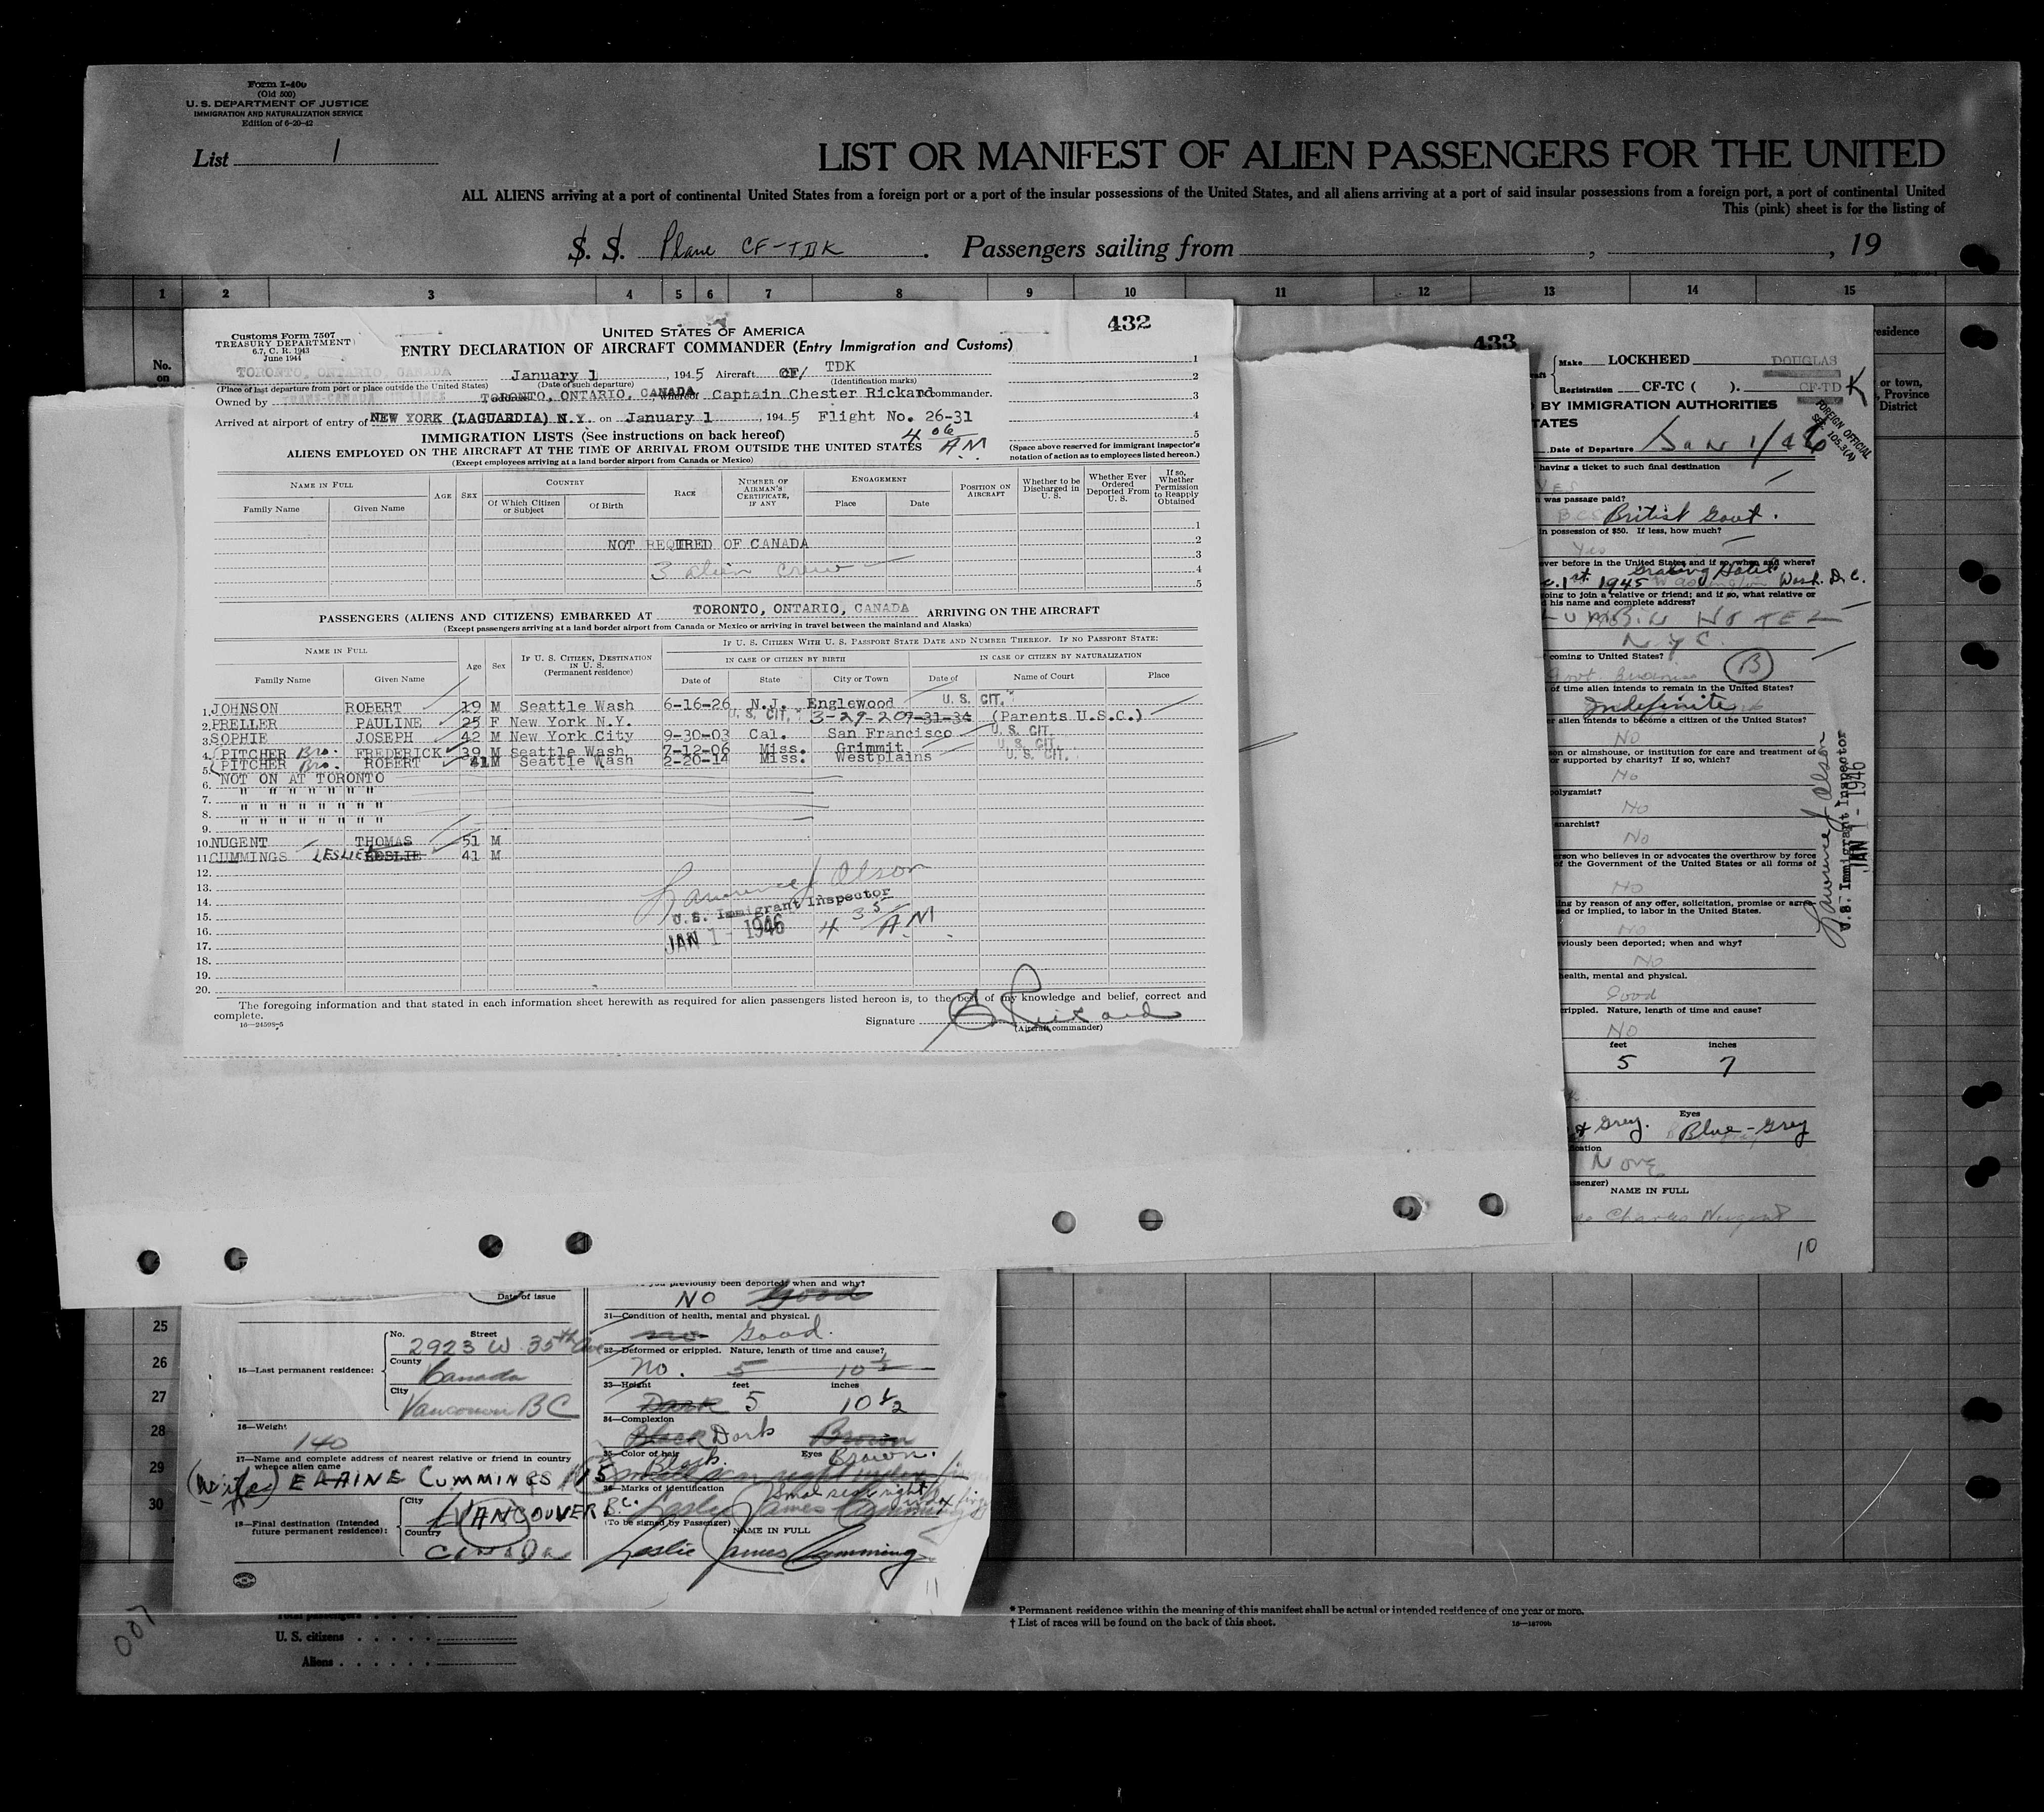 Form I-400
(Old 500)
U. S. DEPARTMENT OF JUSTICE
IMMIGRATION AND NATURALIZATION SERVICE
Edition of 6-20-42
List 1
LIST OR MANIFEST OF ALIEN PASSENGERS FOR THE UNITED
ALL ALIENS arriving at a port of continental United States from a foreign port or a port of the insular possessions of the United States, and all aliens arriving at a port of said insular possessions from a foreign port, a port of continental United
This (pink) sheet is for the listing of
S. S. Plane CF-TDK . Passengers sailing from , , 19
1 2 3 4 5 6 7 8 9 10 11 12 13 14 15
No.
on
Customs Form 7507
TREASURY DEPARTMENT
6.7, C. R. 1943
June 1944
UNITED STATES OF AMERICA
432
ENTRY DECLARATION OF AIRCRAFT COMMANDER (Entry Immigration and Customs)
TORONTO, ONTARIO, CANADA January 1 , 1945 Aircraft CF/ TDK
(Place of last departure from port or place outside the United States) (Date of such departure) (Identification marks)
Owned by TRANS-CANADA AIR LINES TORONTO, ONTARIO, CANADA Captain Chester Rickard commander.
Arrived at airport of entry of NEW YORK (LAGUARDIA) N.Y. on January 1 , 1945 Flight No. 26-31
1
2
3
4
5
IMMIGRATION LISTS (See instructions on back hereof) 4 06 A.M
ALIENS EMPLOYED ON THE AIRCRAFT AT THE TIME OF ARRIVAL FROM OUTSIDE THE UNITED STATES
(Except employees arriving at a land border airport from Canada or Mexico)
(Space above reserved for immigrant inspector's
notation of action as to employees listed hereon.)
NAME IN FULL AGE SEX COUNTRY RACE NUMBER OF AIRMAN'S CERTIFICATE, IF ANY ENGAGEMENT POSITION ON AIRCRAFT Whether to be Discharged in U. S. Whether Ever Ordered Deported From U. S. If so, Whether Permission to Reapply Obtained
Family Name Given Name Of Which Citizen or Subject Of Birth Place Date
1
NOT REQUIRED OF CANADA 2
3
3 alien crew 4
5
PASSENGERS (ALIENS AND CITIZENS) EMBARKED AT TORONTO, ONTARIO, CANADA ARRIVING ON THE AIRCRAFT
(Except passengers arriving at a land border airport from Canada or Mexico or arriving in travel between the mainland and Alaska)
NAME IN FULL Age Sex IF U. S. CITIZEN, DESTINATION IN U. S. (Permanent residence) IF U. S. CITIZEN WITH U. S. PASSPORT STATE DATE AND NUMBER THEREOF. IF NO PASSPORT STATE:
IN CASE OF CITIZEN BY BIRTH IN CASE OF CITIZEN BY NATURALIZATION
Family Name Given Name Date of State City or Town Date of Name of Court Place
1. JOHNSON ROBERT 19 M Seattle Wash 6-16-26 N.J. Englewood U. S. CIT.
2. PRELLER PAULINE 25 F New York N.Y. U. S. CIT. 3-29-20 7-31-34 (Parents U.S.C.)
3. SOPHIE JOSEPH 42 M New York City 9-30-03 Cal. San Francisco U. S. CIT.
4. PITCHER Bro. FREDERICK 39 M Seattle Wash 7-12-06 Miss. Grimmit U. S. CIT.
5. PITCHER Bro. ROBERT 41 M Seattle Wash 2-20-14 Miss. Westplains U. S. CIT.
6. NOT ON AT TORONTO
7. " " " " " " " "
8. " " " " " " " "
9. " " " " " " " "
10. NUGENT THOMAS 51 M
11. CUMMINGS LESLIE LESLIE 41 M
12.
13.
14.
15.
16.
17.
18.
19.
20.
Lawrence J Olson
U.S. Immigrant Inspector
JAN 1 - 1946 4 35 A.M
The foregoing information and that stated in each information sheet herewith as required for alien passengers listed hereon is, to the best of my knowledge and belief, correct and
complete.
16—24598-5
Signature C Rickard
(Aircraft commander)
433
Make LOCKHEED DOUGLAS
Registration CF-TC ( ). CF-TD K
BY IMMIGRATION AUTHORITIES
FOREIGN OFFICIAL
Date of Departure Jan 1/46
having a ticket to such final destination
YES
was passage paid?
British Govt.
in possession of $50. If less, how much?
Yes
ever before in the United States and if so, when and where?
1st 1945 Wash. D.C.
going to join a relative or friend; and if so, what relative or
his name and complete address?
HOTEL
N.Y.C.
coming to United States? B
Govt. Business
of time alien intends to remain in the United States?
Indefinite
alien intends to become a citizen of the United States?
NO
or almshouse, or institution for care and treatment of
or supported by charity? If so, which?
No
polygamist?
NO
anarchist?
No
person who believes in or advocates the overthrow by force
of the Government of the United States or all forms of
NO
by reason of any offer, solicitation, promise or
or implied, to labor in the United States.
NO
previously been deported; when and why?
NO
health, mental and physical.
Good
crippled. Nature, length of time and cause?
NO
feet inches
5 7
Eyes
Grey. Blue-Grey
None
NAME IN FULL
Charles Nugent
10
Lawrence J Olson
U.S. Immigrant Inspector
JAN 1 - 1946
residence
or town,
Province
District
25
26
27
28
29
30
Date of issue
No. Street
2923 W 35th Ave
15—Last permanent residence:
County
Canada
City
Vancouver BC
16—Weight
140
17—Name and complete address of nearest relative or friend in country
whence alien came
(Wife) ELAINE CUMMINGS
18—Final destination (Intended
future permanent residence):
City
VANCOUVER B.C.
Country
CANADA
you previously been deported; when and why?
NO Good
31—Condition of health, mental and physical.
no Good.
32—Deformed or crippled. Nature, length of time and cause?
No. 5 10 1/2
33—Height feet inches
Dark 5 10 1/2
34—Complexion
Black Dark Brown
35—Color of hair Eyes
Black. Brown.
36—Marks of identification
Leslie James Cumming
(To be signed by Passenger)
NAME IN FULL
Leslie James Cumming
11
007
Total passengers
U. S. citizens
Aliens
* Permanent residence within the meaning of this manifest shall be actual or intended residence of one year or more.
† List of races will be found on the back of this sheet.